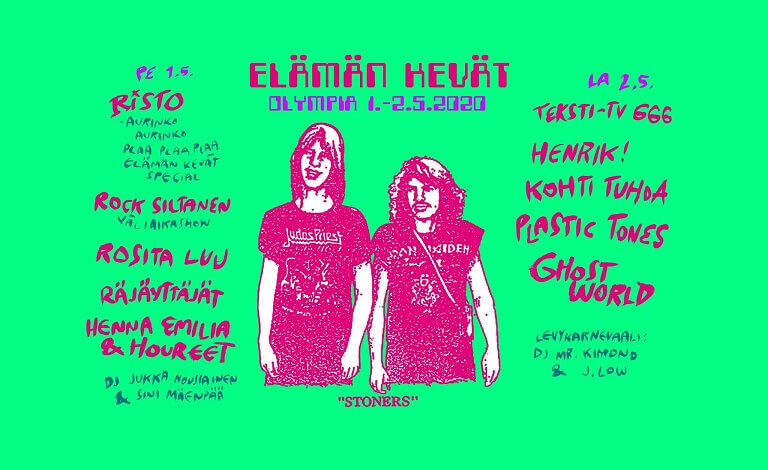 ELÄMÄN KEVÄT
OLYMPIA 1.-2.5.2020
PE 1.5.
RISTO
-AURINKO
AURINKO
PLAA PLAA PLAA
ELÄMÄN KEVÄT
SPECIAL
ROCK SILTANEN
VÄLIAIKASHOW
ROSITA LUU
RÄJÄYTTÄJÄT
HENNA EMILIA
& HOUREET
DJ JUKKA NOUSIAINEN
& SINI MÄENPÄÄ
Judas Priest
IRON MAIDEN
"STONERS"
LA 2.5.
TEKSTI-TV 666
HENRIK!
KOHTI TUHOA
PLASTIC TONES
GHOST
WORLD
LEVYKARNEVAALI:
DJ MR. KIMONO
& J.LOW